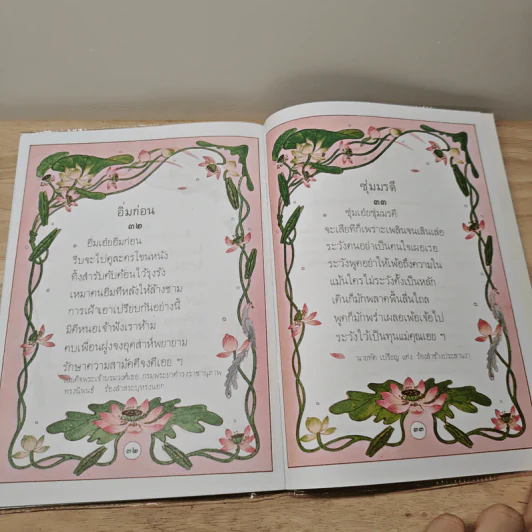 อิ่มก่อน
๓๒
อิ่มเอ๋ยอิ่มก่อน
รีบจะไปดูละครโขนหนัง
ทิ้งสำรับคับค้อนไว้รุงรัง
เหมาคนอิ่มทีหลังให้ล้างชาม
การเฝ้าเอาเปรียบกันอย่างนี้
มิดีหนอเจ้าฟังเราห้าม
คบเพื่อนฝูงจงอุตส่าห์พยายาม
รักษาความสามัคคีจงดีเอย ฯ
สมเด็จพระเจ้าบรมวงศ์เธอ กรมพระยาดำรงราชานุภาพ
ทรงนิพนธ์
๓๒
ซุ่มมรดี
๓๓
ซุ่มเอ๋ยซุ่มมรดี
จะเสียทีก็เพราะเพลินจนเกินเล่อ
ระวังตนอย่าเป็นคนใจเผอเรอ
ระวังพูดอย่าให้เพ้อถึงความใน
แม้นใครไม่ระวังตั้งเป็นหลัก
เดินก็มักพลาดพลั้นลื่นไถล
พูดก็มักพร่ำเผลอเพ้อเจ้อไป
ระวังไว้เป็นทุนแม่คุณเอย ฯ
นายทัด เปรียญ แต่ง
๓๓